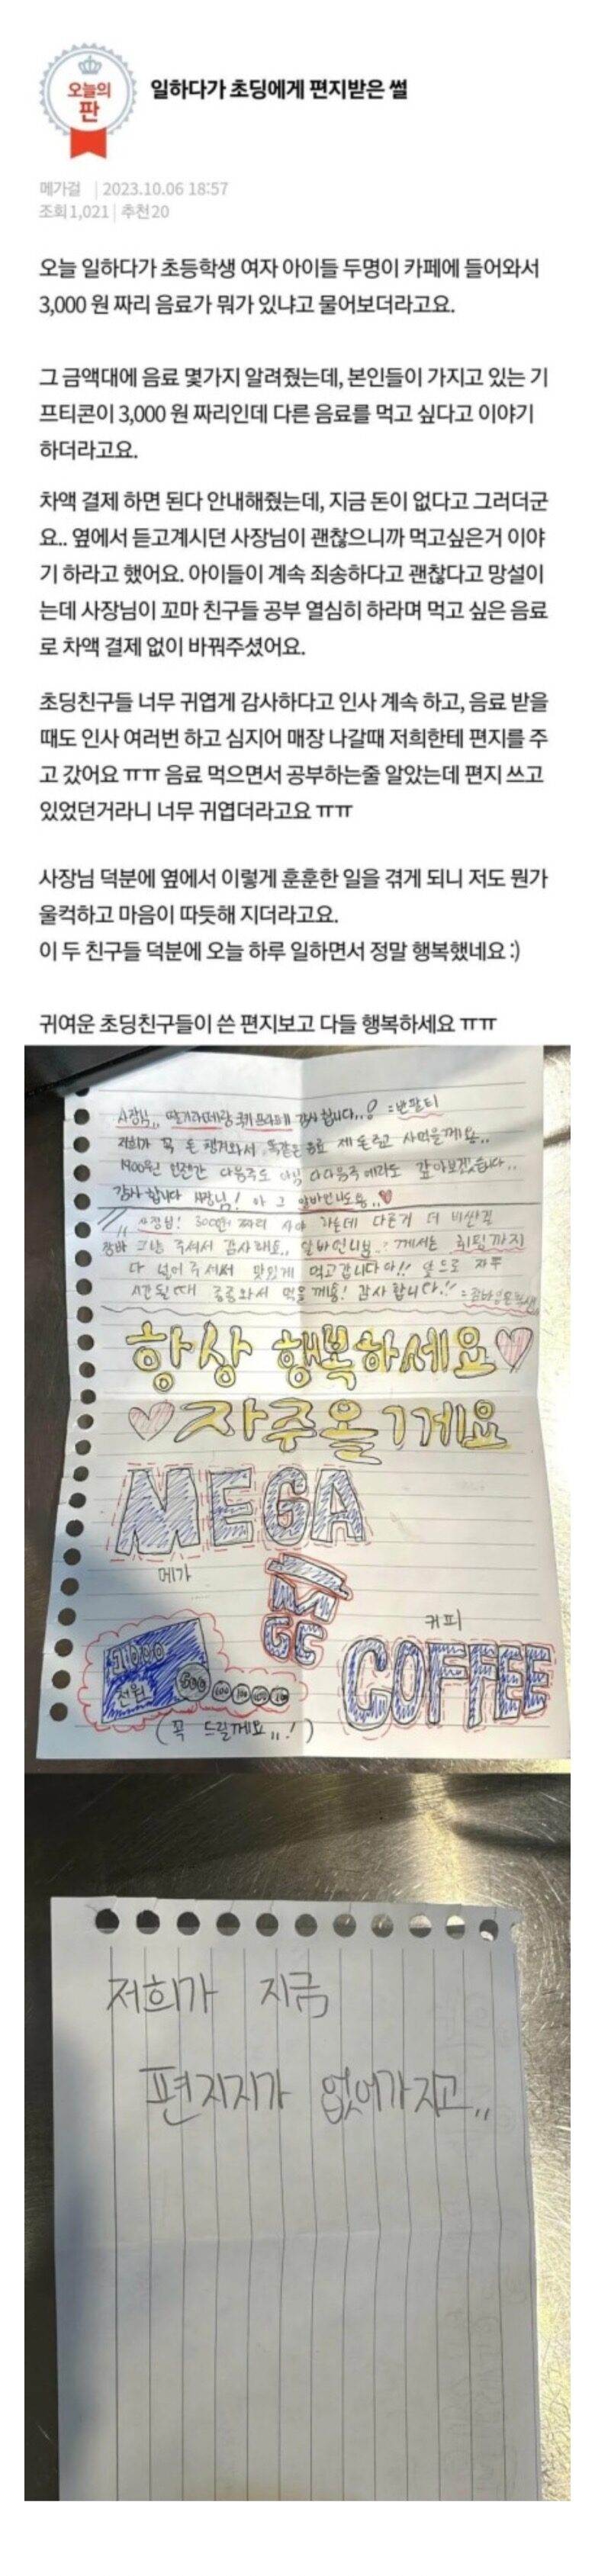 오늘의
판
일하다가 초딩에게 편지받은 썰
메가걸 | 2023.10.06 18:57
조회 1,021 | 추천 20
오늘 일하다가 초등학생 여자 아이들 두명이 카페에 들어와서
3,000 원 짜리 음료가 뭐가 있냐고 물어보더라고요.
그 금액대에 음료 몇가지 알려줬는데, 본인들이 가지고 있는 기
프티콘이 3,000 원 짜리인데 다른 음료를 먹고 싶다고 이야기
하더라고요.
차액 결제 하면 된다 안내해줬는데, 지금 돈이 없다고 그러더군
요.. 옆에서 듣고계시던 사장님이 괜찮으니까 먹고싶은거 이야
기 하라고 했어요. 아이들이 계속 죄송하다고 괜찮다고 망설이
는데 사장님이 꼬마 친구들 공부 열심히 하라며 먹고 싶은 음료
로 차액 결제 없이 바꿔주셨어요.
초딩친구들 너무 귀엽게 감사하다고 인사 계속 하고, 음료 받을
때도 인사 여러번 하고 심지어 매장 나갈때 저희한테 편지를 주
고 갔어요 ㅠㅠ 음료 먹으면서 공부하는줄 알았는데 편지 쓰고
있었던거라니 너무 귀엽더라고요 ㅠㅠ
사장님 덕분에 옆에서 이렇게 훈훈한 일을 겪게 되니 저도 뭔가
울컥하고 마음이 따듯해 지더라고요.
이 두 친구들 덕분에 오늘 하루 일하면서 정말 행복했네요 :)
귀여운 초딩친구들이 쓴 편지보고 다들 행복하세요 ㅠㅠ
사장님,, 딸기라떼랑 쿠키프라페 감사합니다..! =반팔티
저희가 꼭 돈 챙겨와서 똑같은 음료 제돈주고 사먹을께용..
1900원 언젠간 다음주도 아닌 다다음주에라도 갚아보겠습니다..
감사합니다 사장님! 아 그 알바언니도용..♥
사장님! 3000원 짜리 사야 가능데 다른거 더 비싼걸
그냥 주셔서 감사해요,, 알바언니님..? 께서는 휘핑까지
다 넣어주셔서 맛있게 먹고갑니다아!! 앞으로 자주
시간될때 종종와서 먹을게용! 감사합니다!!
항상 행복하세요♡
♡자주올게요
MEGA
메가
M
GC
커피
COFFEE
1000
천원
500 100 100 100 100
(꼭 드릴께요,,!)
저희가 지금
편지지가 없어가지고,,